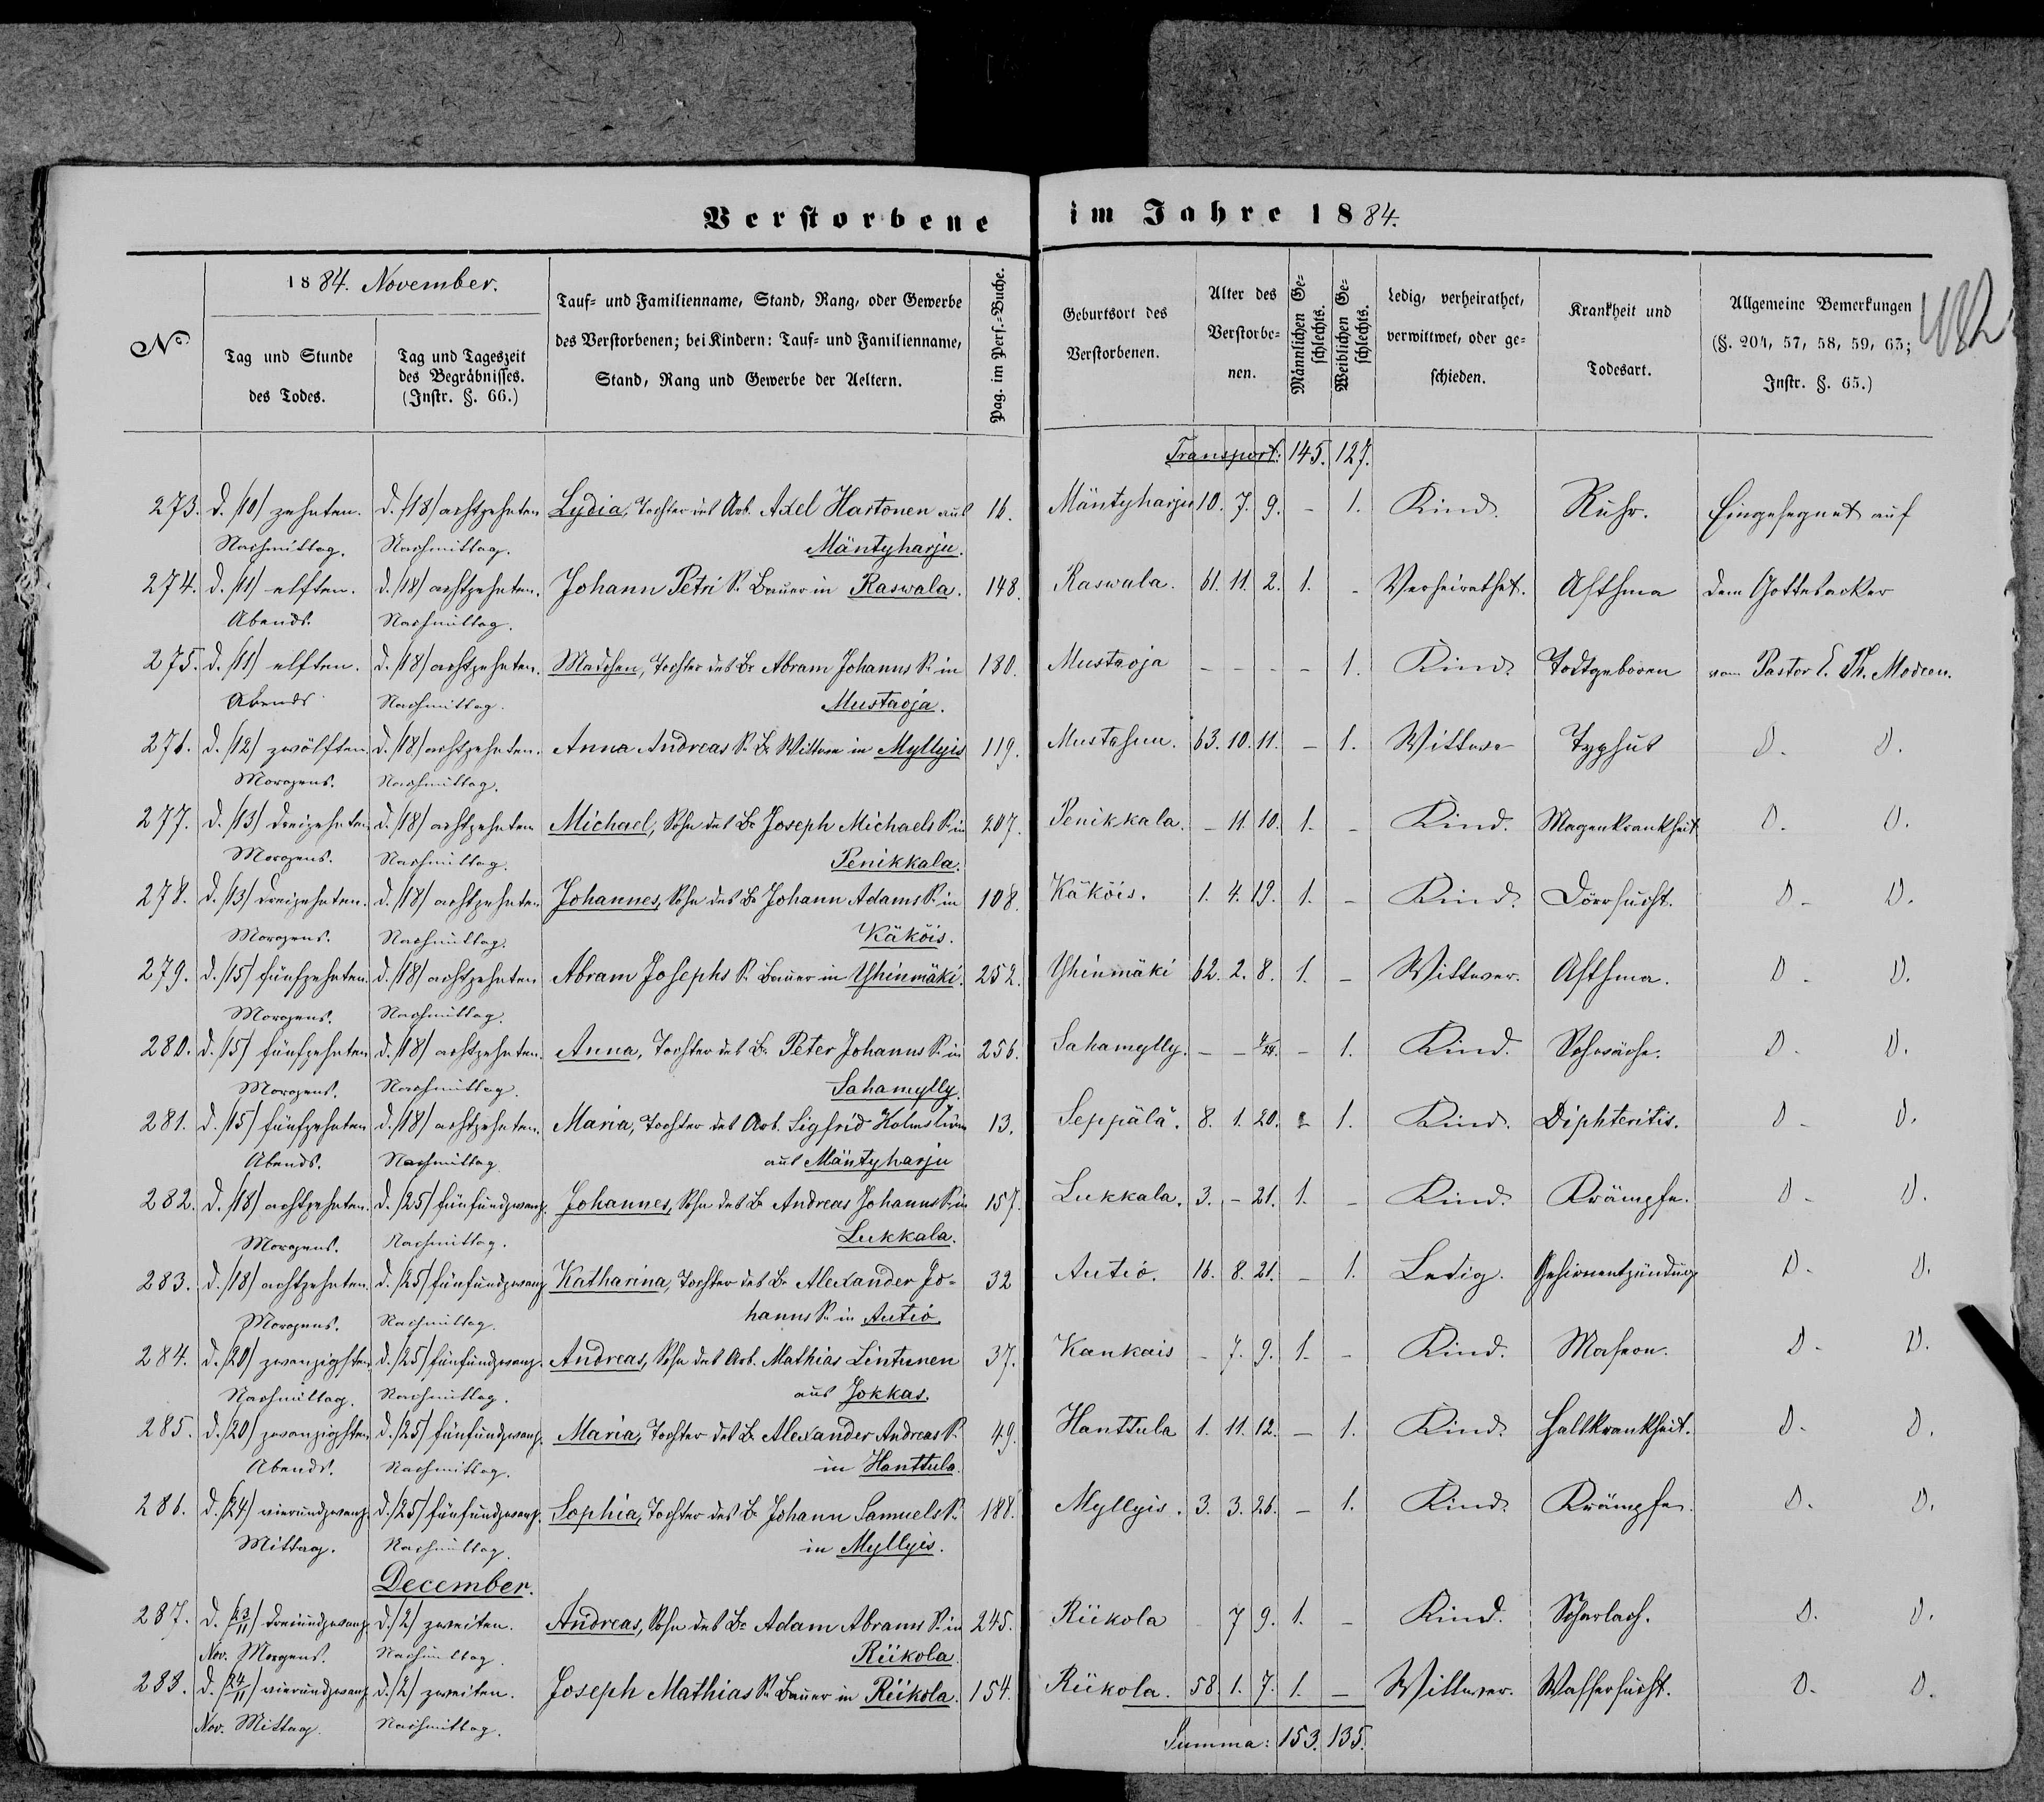 Verstorbene im Jahre 1884.
482
No
1884. November.
Tag und Stunde des Todes.
Tag und Tageszeit des Begräbnisses. (Instr. §. 66.)
Tauf- und Familienname, Stand, Rang, oder Gewerbe des Verstorbenen; bei Kindern: Tauf- und Familienname, Stand, Rang und Gewerbe der Aeltern.
Pag. im Pers.-Buche.
Geburtsort des Verstorbenen.
Alter des Verstorbenen.
Männlichen Geschlechts.
Weiblichen Geschlechts.
Ledig, verheirathet, verwittwet, oder geschieden.
Krankheit und Todesart.
Allgemeine Bemerkungen (§. 204, 57, 58, 59, 63; Instr. §. 65.)
Transport: 145. 127.
273. d. /10/ zehnten. d. /18/ achtzehnten Lydia, Tochter des Arb. Axel Hartonen aus 16. Mäntyharju 10. 7. 9. - 1. Kind. Ruhr. Eingesegnet auf
Nachmittag. Nachmittag. Mäntyharju.
274. d. /11/ elften. d. /18/ achtzehnten. Johann Petri S. Bauer in Raswala. 148. Raswala. 61. 11. 2. 1. - Verheirathet. Asthma dem Gottesacker
Abends. Nachmittag.
275. d. /11/ elften. d. /18/ achtzehnten. Mädchen, Tochter des Br. Abram Johanns S. in 180. Mustaoja - - - - 1. Kind. Todtgeboren vom Pastor E. Th. Modeen.
Abends Nachmittag. Mustaoja.
276. d. /12/ zwölften. d. /18/ achtzehnten. Anna Andreas S. Br. Wittwe in Myllyis 119. Mustasuu. 63. 10. 11. - 1. Wittwe Typhus D. D.
Morgens. Nachmittag.
277. d. /13/ dreizehnten d. /18/ achtzehnten Michael, Sohn des Br. Joseph Michaels S. in 207. Penikkala. - 11. 10. 1. - Kind. Magenkrankheit D. D.
Morgens. Nachmittag. Penikkala.
278. d. /13/ dreizehnten. d. /18/ achtzehnten Johannes, Sohn des Br. Johann Adams S. in 108. Käköis. 1. 4. 19. 1. - Kind. Dörrsucht. D. D.
Morgens. Nachmittag. Käköis.
279. d. /15/ fünfzehnten. d. /18/ achtzehnten Abram Josephs S. Bauer in Yhinmäki. 252. Yhinmäki 62. 2. 8. 1. - Wittwer. Asthma. D. D.
Morgens. Nachmittag.
280. d. /15/ fünfzehnten d. /18/ achtzehnten. Anna, Tochter des Br. Peter Johanns S. in 256. Sahamylly. - - - 1. Kind. Schwäche. D. D.
Morgens. Nachmittag. Sahamylly.
281. d. /15/ fünfzehnten d. /18/ achtzehnten. Maria, Tochter des Arb. Sigfrid Holmström 13. Seppälä. 8. 1. 20. - 1. Kind. Diphteritis. D. D.
Abends. Nachmittag aus Mäntyharju
282. d. /18/ achtzehnten. d. /25/ fünfundzwanz. Johannes, Sohn des Br. Andreas Johanns S. in 157. Lukkala. 3. - 21. 1. - Kind. Krämpfe. D. D.
Morgens. Nachmittag. Lukkala.
283. d. /18/ achtzehnten. d. /25/ fünfundzwanz. Katharina, Tochter des Br. Alexander Jo- 32 Autio. 16. 8. 21. - 1. Ledig. Gehirnentzündung D. D.
Morgens. Nachmittag. hanns S. in Autio.
284. d. /20/ zwanzigsten d. /25/ fünfundzwanz. Andreas, Sohn des Arb. Mathias Lintunen 37. Kankais - 7. 9. 1. - Kind. Masern. D. D.
Nachmittag. Nachmittag. aus Jokkas.
285. d. /20/ zwanzigsten d. /25/ fünfundzwanz. Maria, Tochter des Br. Alexander Andreas S. 49. Hanttula 1. 11. 12. - 1. Kind. Halskrankheit. D. D.
Abends. Nachmittag. in Hanttula.
286. d. /24/ vierundzwanz. d. /25/ fünfundzwanz. Sophia, Tochter des Br. Johann Samuels S. 188. Myllyis. 3. 3. 26. - 1. Kind. Krämpfe. D. D.
Mittag. Nachmittag. in Myllyis.
December.
287. d. /23/11/ dreiundzwanz. d. /2/ zweiten. Andreas, Sohn des Br. Adam Abrams S. in 245. Riikola - 7 9. 1. - Kind. Scharlach. D. D.
Nov. Morgens. Nachmittag. Riikola.
288. d. /24/11/ vierundzwanz. d. /2/ zweiten. Joseph Mathias S. Bauer in Riikola. 154. Riikola. 58. 1. 7. 1. - Wittwer. Wassersucht. D. D.
Nov. Mittag. Nachmittag.
Summa: 153. 135.